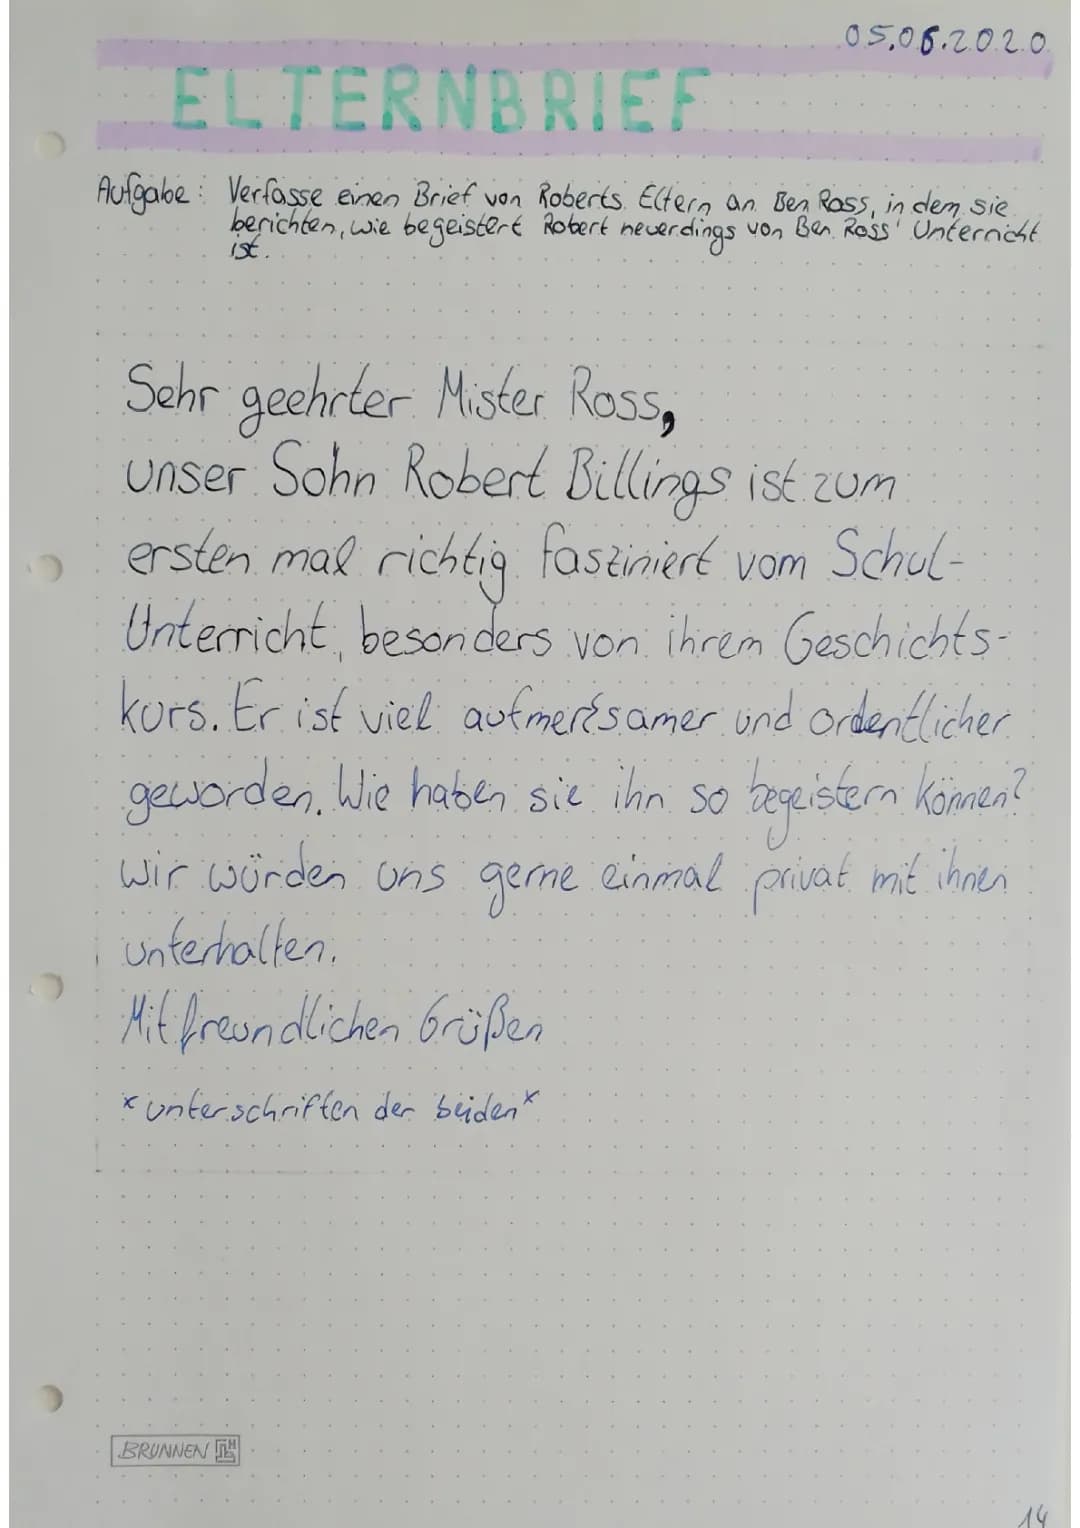 05.06.2020
ELTERNBRIEF
Aufgabe: Verfasse einen Brief von Roberts Eltern an Ben Ross, in dem sie
berichten, wie begeistert Robert neuerdings von Ben Ross' Unterricht
ist.
Sehr geehrter Mister Ross,
unser Sohn Robert Billings ist zum
ersten mal richtig fasziniert vom Schul-
Unterricht, besonders von ihrem Geschichts-
kurs. Er ist viel aufmerksamer und ordentlicher
geworden. Wie haben sie ihn so begeistern können?
Wir würden uns gerne einmal privat mit ihnen
unterhalten.
Mit freundlichen Grüßen
*unterschriften der beiden*
BRUNNEN
14